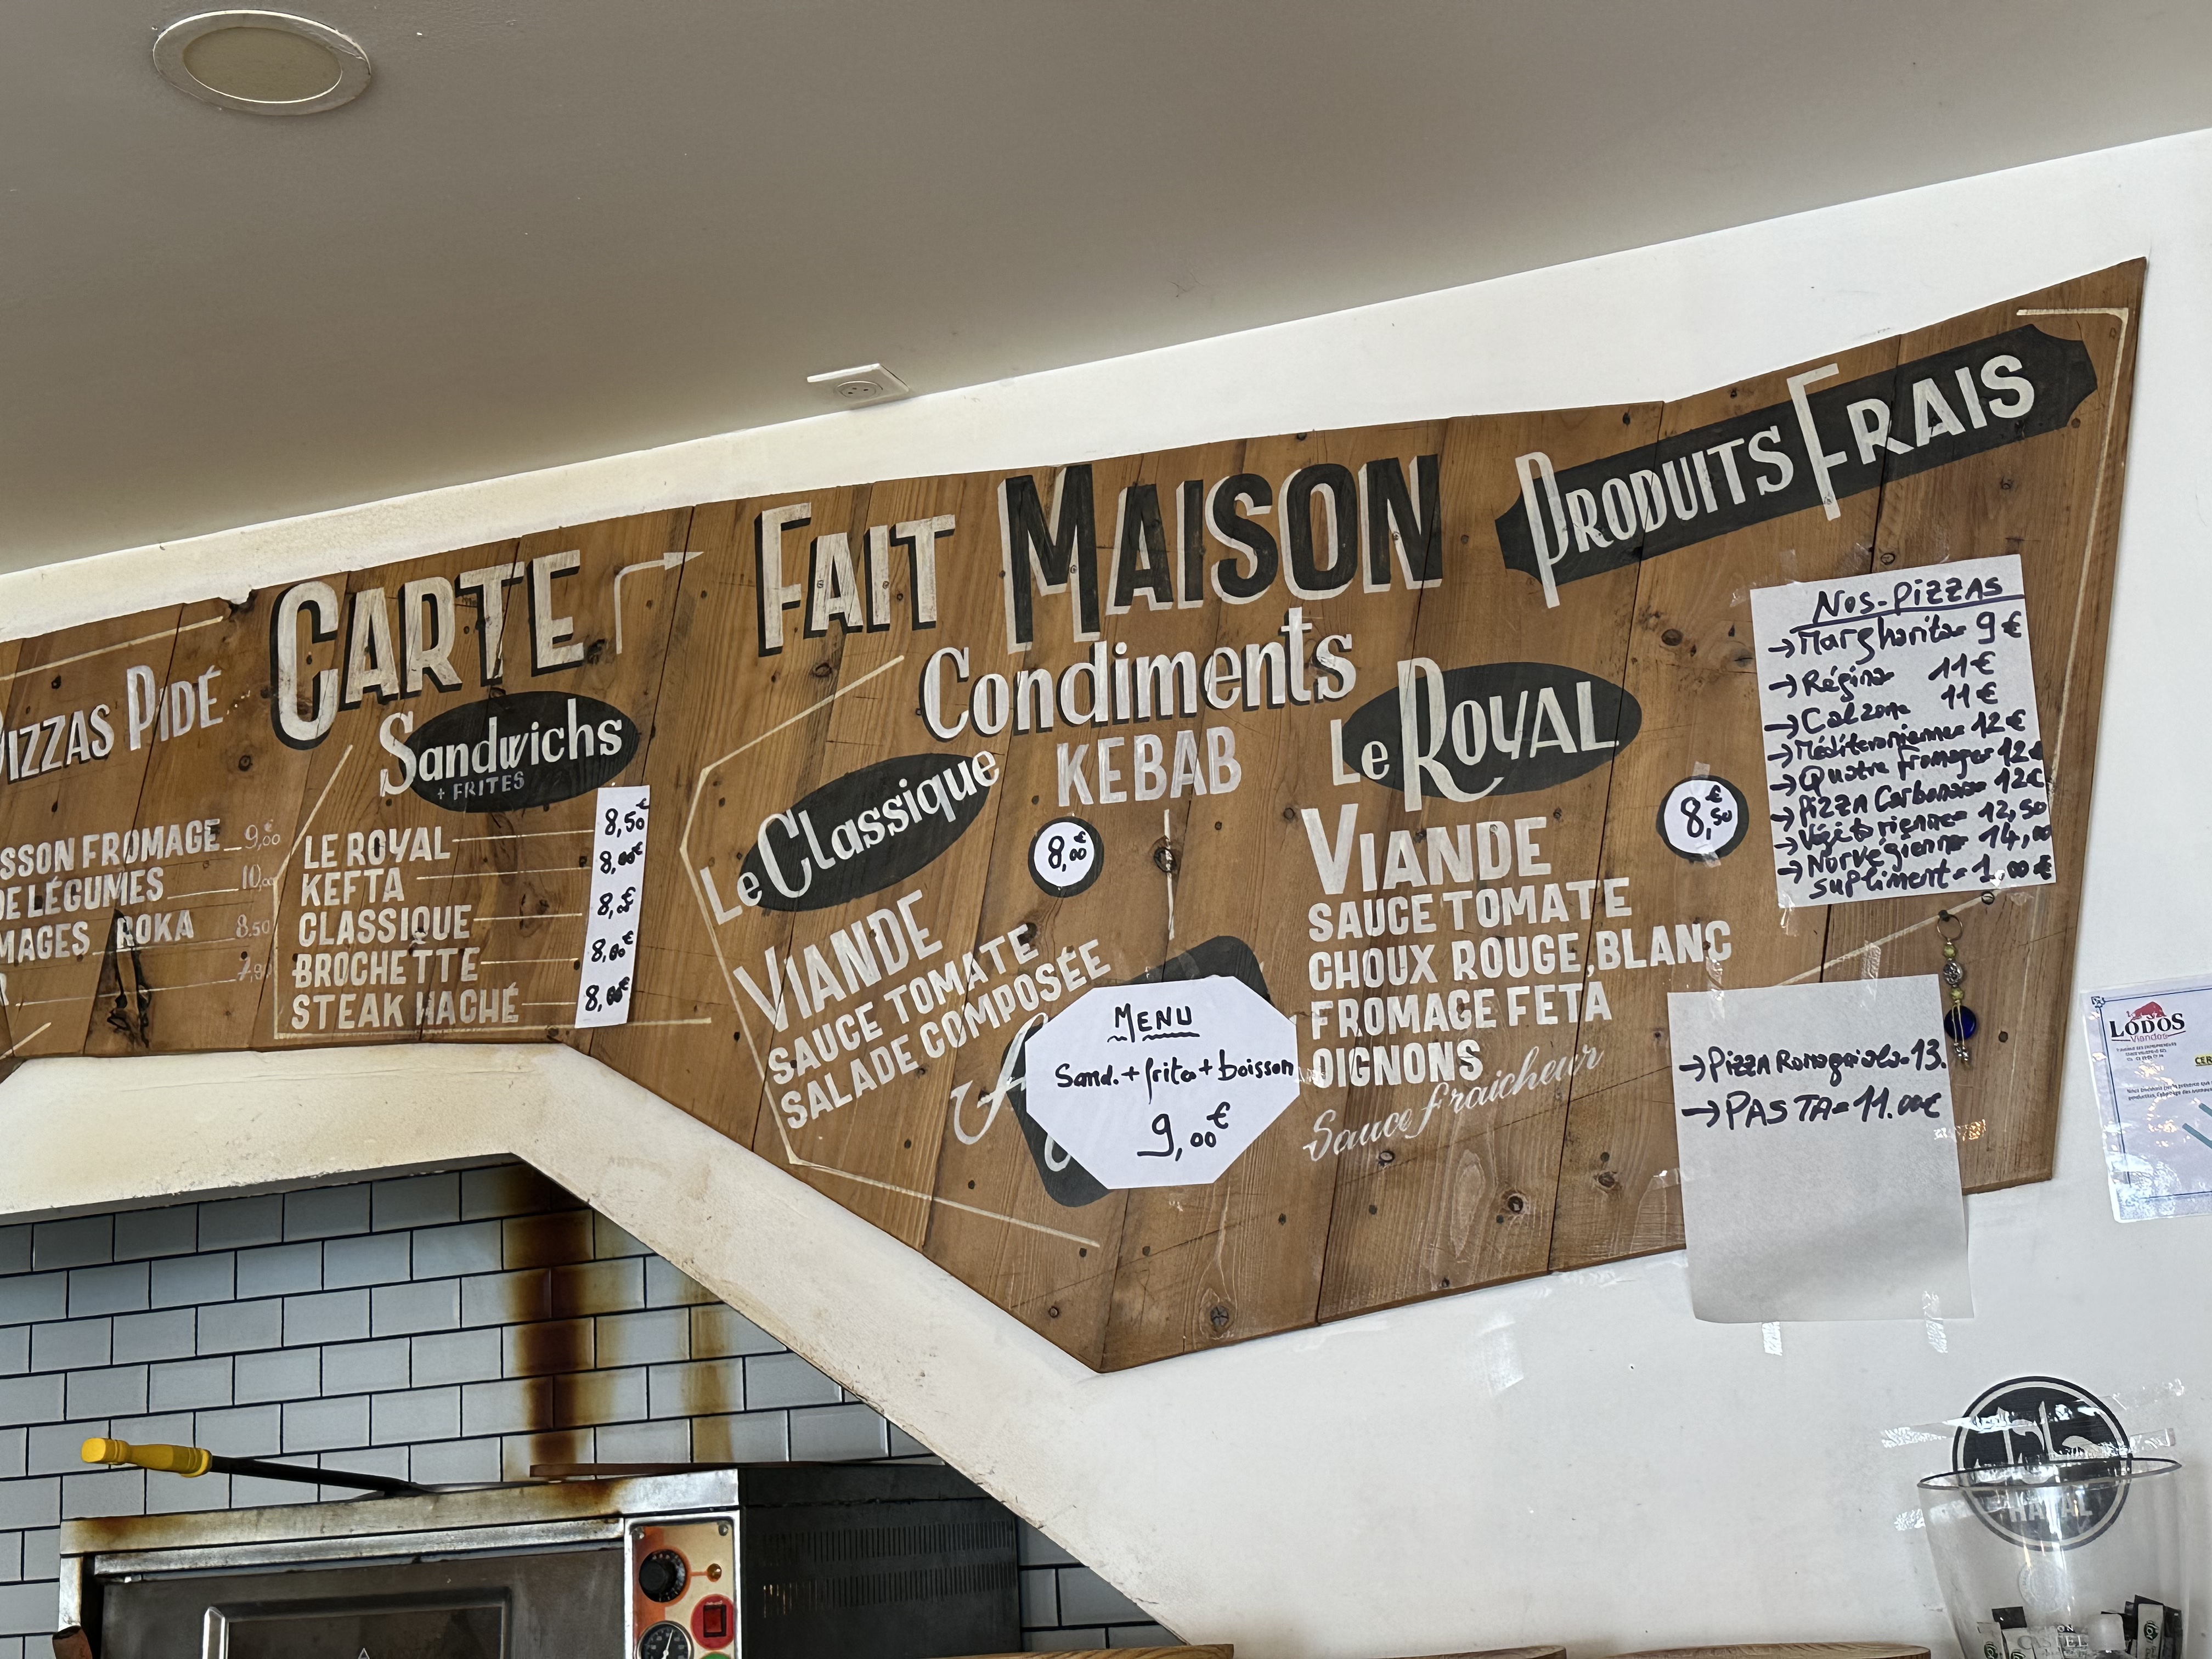 PIZZAS PIDÉ
SSON FROMAGE 9,00€
DE LÉGUMES 10,00
MAGES ROKA 8.50
CARTE
Sandwichs
+ FRITES
LE ROYAL 8,50€
KEFTA 8,00€
CLASSIQUE 8,€
BROCHETTE 8,00€
STEAK HACHÉ 8,00€
FAIT MAISON
PRODUITS FRAIS
Condiments
KEBAB
Le Classique
8,00€
VIANDE
SAUCE TOMATE
SALADE COMPOSÉE
MENU
Sand.+frites+boisson
9,00€
Le ROYAL
8,50€
VIANDE
SAUCE TOMATE
CHOUX ROUGE,BLANC
FROMAGE FETA
OIGNONS
Sauce fraicheur
NOS-PIZZAS
→Margharita 9€
→Régina 11€
→Calzone 11€
→Méditeranienne 12€
→Quatre fromages 12€
→PIZZA Carbonara 12€
→Végétarienne 12,50
→Norvégienne 14,00
supliment 1,00€
→PIZZA Romagniola 13.
→PASTA 11.00€
LODOS
Viandes
HALAL
CASTEL